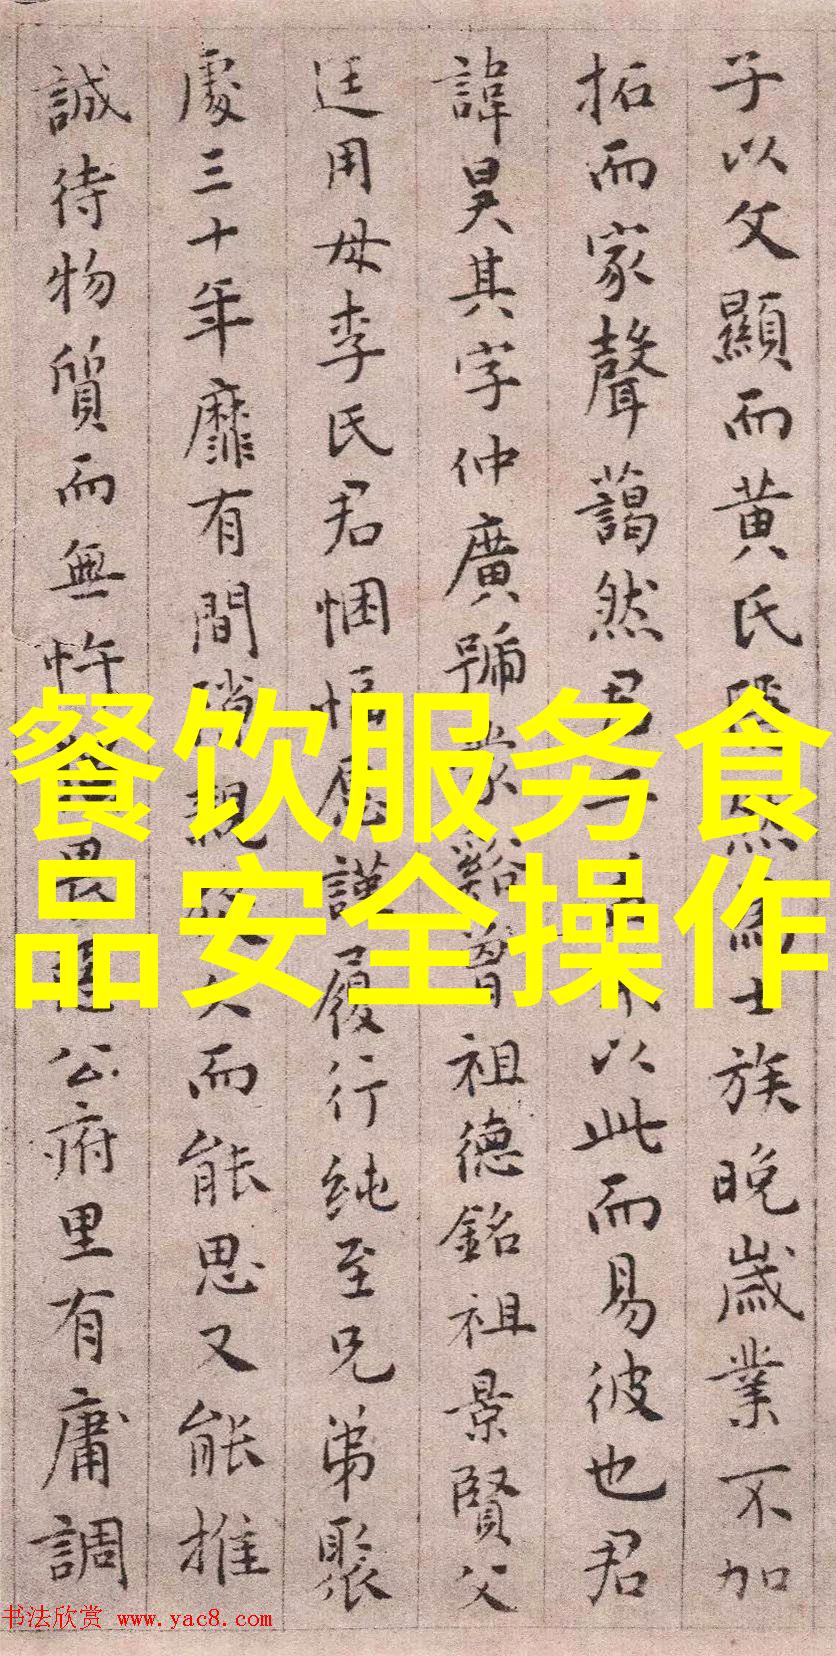 子以父顯而黄氏
然
士族晚歲業不加
拓而家聲藹然君子
以此而易彼也君
諱昊其字仲廣號
谿曾祖德銘祖景賢父
廷用母李氏君悃愊
謹履行純至兄弟聚
處三十年靡有間
親
久而能思又能推
誠待物質而無忤
畏
公府里有庸調
餐饮服务食
品安全操作
书法欣赏 www.yac8.com